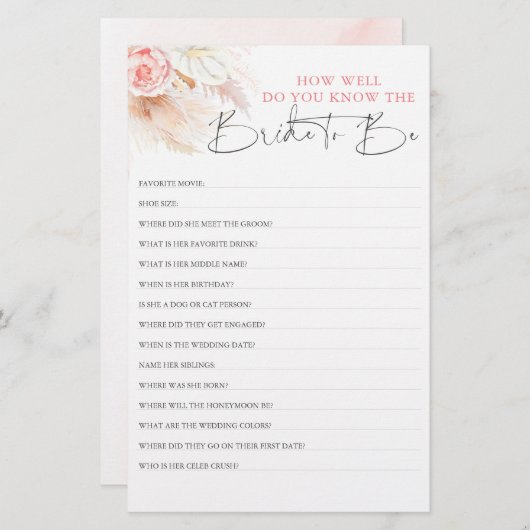 HOW WELL
DO YOU KNOW THE
Bride to Be
FAVORITE MOVIE:
SHOE SIZE:
WHERE DID SHE MEET THE GROOM?
WHAT IS HER FAVORITE DRINK?
WHAT IS HER MIDDLE NAME?
WHEN IS HER BIRTHDAY?
IS SHE A DOG OR CAT PERSON?
WHERE DID THEY GET ENGAGED?
WHEN IS THE WEDDING DATE?
NAME HER SIBLINGS:
WHERE WAS SHE BORN?
WHERE WILL THE HONEYMOON BE?
WHAT ARE THE WEDDING COLORS?
WHERE DID THEY GO ON THEIR FIRST DATE?
WHO IS HER CELEB CRUSH?